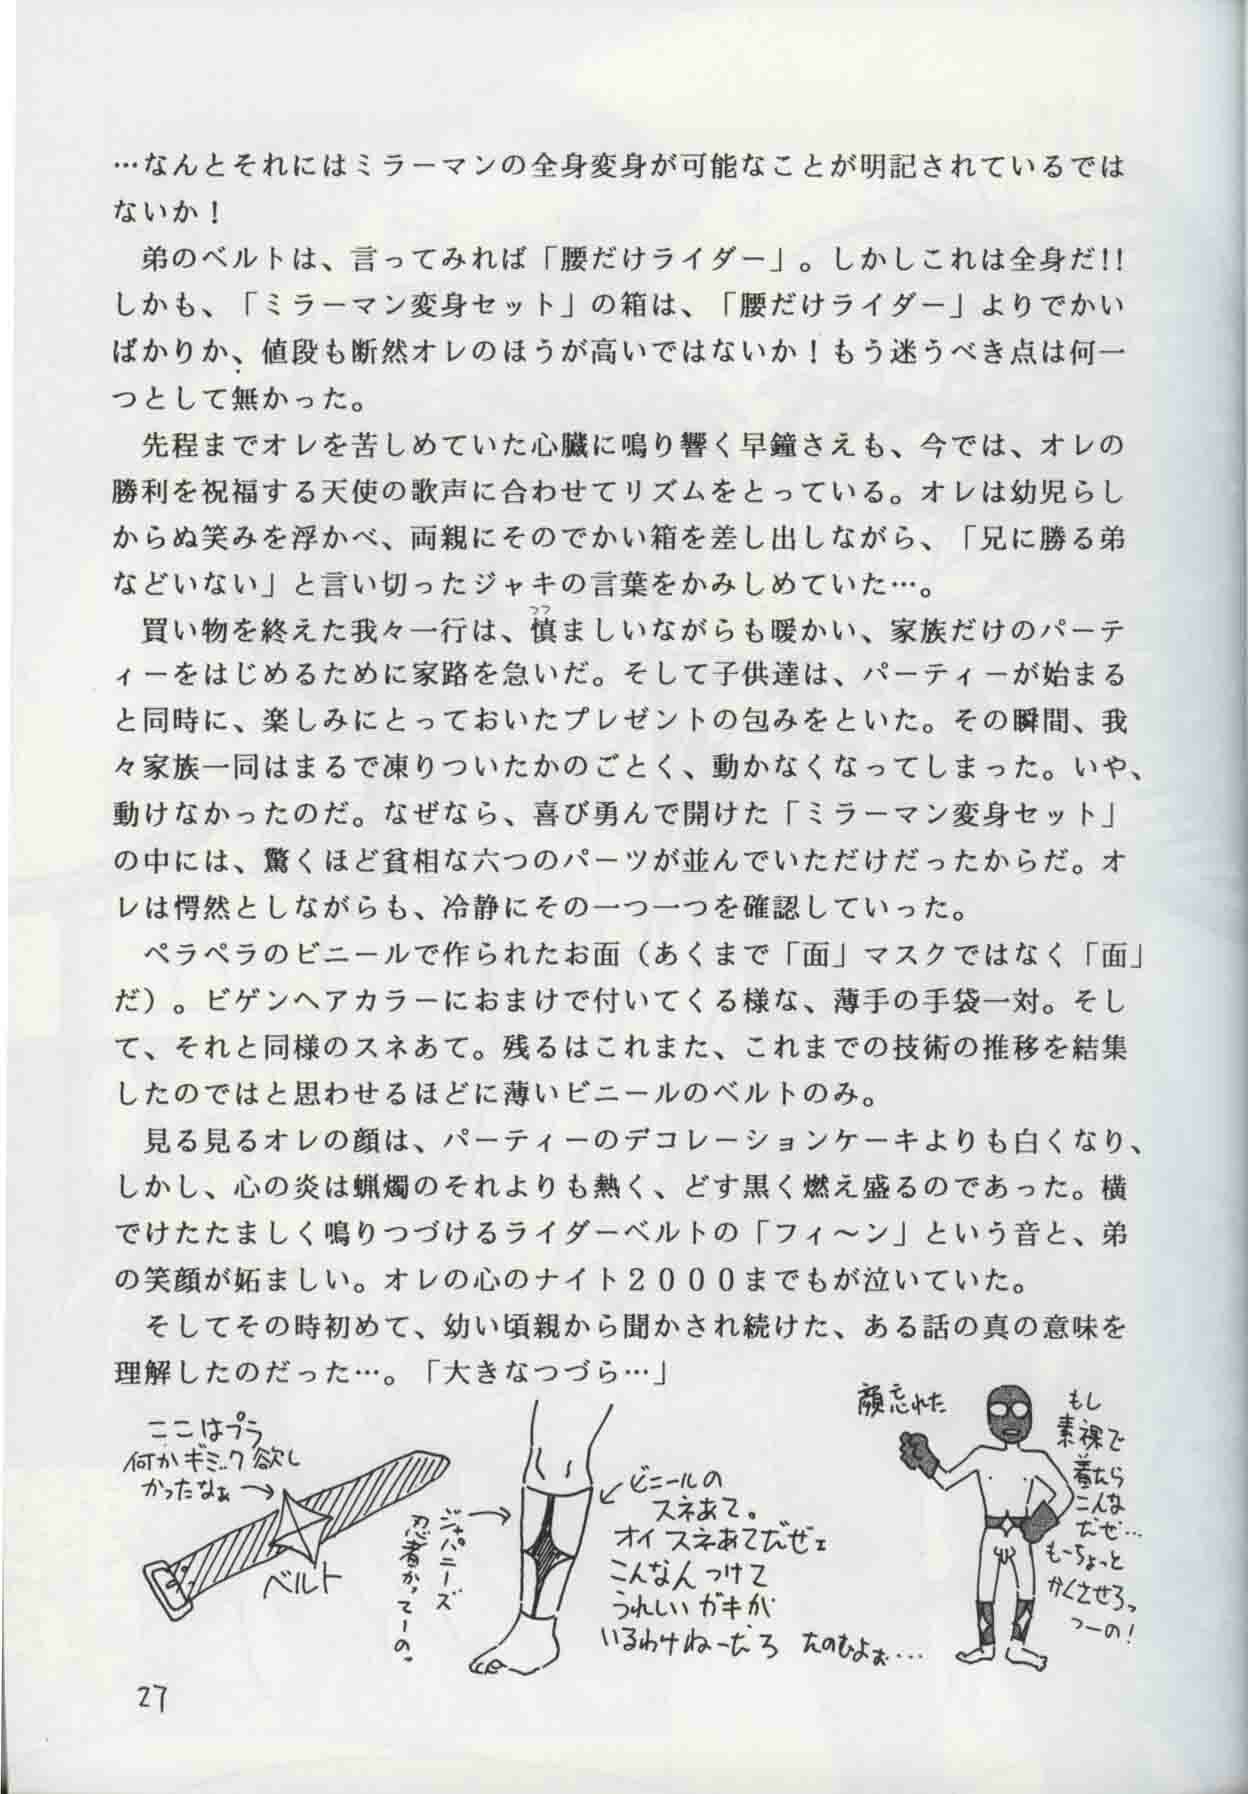 …なんとそれにはミラーマンの全身変身が可能なことが明記されているでは
ないか！
　弟のベルトは、言ってみれば「腰だけライダー」。しかしこれは全身だ!!
しかも、「ミラーマン変身セット」の箱は、「腰だけライダー」よりでかい
ばかりか、値段も断然オレのほうが高いではないか！もう迷うべき点は何一
つとして無かった。
　先程までオレを苦しめていた心臓に鳴り響く早鐘さえも、今では、オレの
勝利を祝福する天使の歌声に合わせてリズムをとっている。オレは幼児らし
からぬ笑みを浮かべ、両親にそのでかい箱を差し出しながら、「兄に勝る弟
などいない」と言い切ったジャキの言葉をかみしめていた…。
　買い物を終えた我々一行は、慎ましいながらも暖かい、家族だけのパーテ
ィーをはじめるために家路を急いだ。そして子供達は、パーティーが始まる
と同時に、楽しみにとっておいたプレゼントの包みをといた。その瞬間、我
々家族一同はまるで凍りついたかのごとく、動かなくなってしまった。いや、
動けなかったのだ。なぜなら、喜び勇んで開けた「ミラーマン変身セット」
の中には、驚くほど貧相な六つのパーツが並んでいただけだったからだ。オ
レは愕然としながらも、冷静にその一つ一つを確認していった。
　ペラペラのビニールで作られたお面（あくまで「面」マスクではなく「面」
だ）。ビゲンヘアカラーにおまけで付いてくる様な、薄手の手袋一対。そし
て、それと同様のスネあて。残るはこれまた、これまでの技術の推移を結集
したのではと思わせるほどに薄いビニールのベルトのみ。
　見る見るオレの顔は、パーティーのデコレーションケーキよりも白くなり、
しかし、心の炎は蝋燭のそれよりも熱く、どす黒く燃え盛るのであった。横
でけたたましく鳴りつづけるライダーベルトの「フィ～ン」という音と、弟
の笑顔が妬ましい。オレの心のナイト２０００までもが泣いていた。
　そしてその時初めて、幼い頃親から聞かされ続けた、ある話の真の意味を
理解したのだった…。「大きなつづら…」
ここはプラ
何かギミック欲し
かったなぁ
ベルト
ジャパニーズ
忍者かってーの。
ビニールの
スネあて。
オイ スネあてだぜェ
こんなん つけて
うれしい ガキが
いるわけねーだろ たのむよぉ…
顔忘れた
もし
素裸で
着たら
こんな
だぜ…
もーちょっと
かくさせろっ
つーの！
27